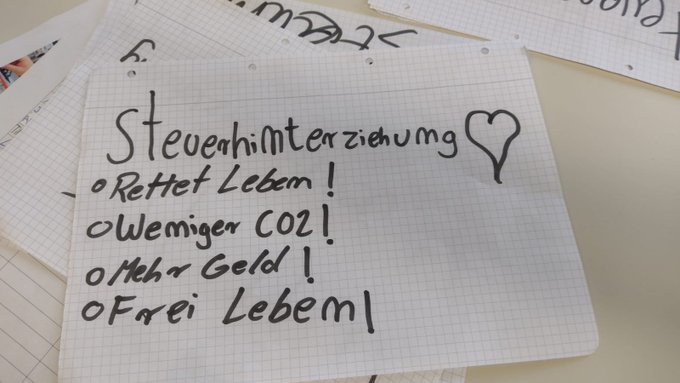 Steuerhinterziehung ♡
○ Rettet Leben!
○ Weniger CO2!
○ Mehr Geld!
○ Frei Leben!